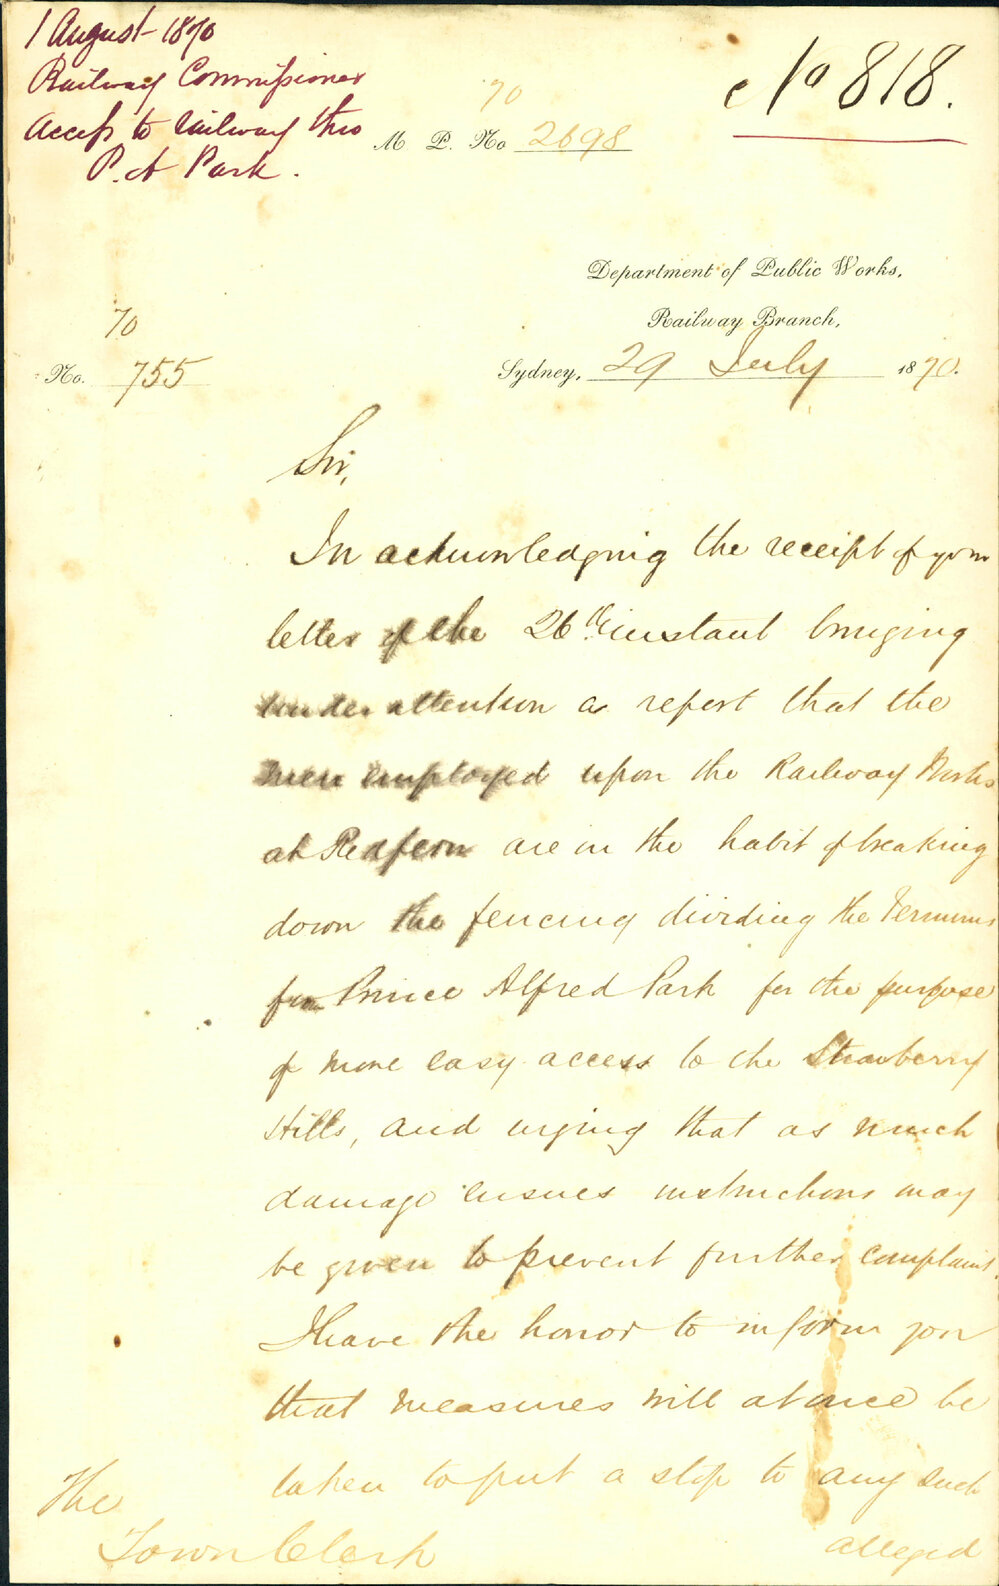 1 August 1870
Railway Commissioner
Access to railway thro
P. A Park.
No 818.
70
M P. No 2698
Department of Public Works,
Railway Branch,
70
No. 755
Sydney, 29 July 1870.
Sir,
In acknowledging the receipt of your
letter of the 26th instant bringing
under attention a report that the
men employed upon the Railway Works
at Redfern are in the habit of breaking
down the fencing dividing the Terminus
from Prince Alfred Park for the purpose
of more easy access to the Strawberry
Hills, and urging that as much
damage ensues instructions may
be given to prevent further complaint.
I have the honor to inform you
that measures will at once be
taken to put a stop to any such
alleged
The
Town Clerk